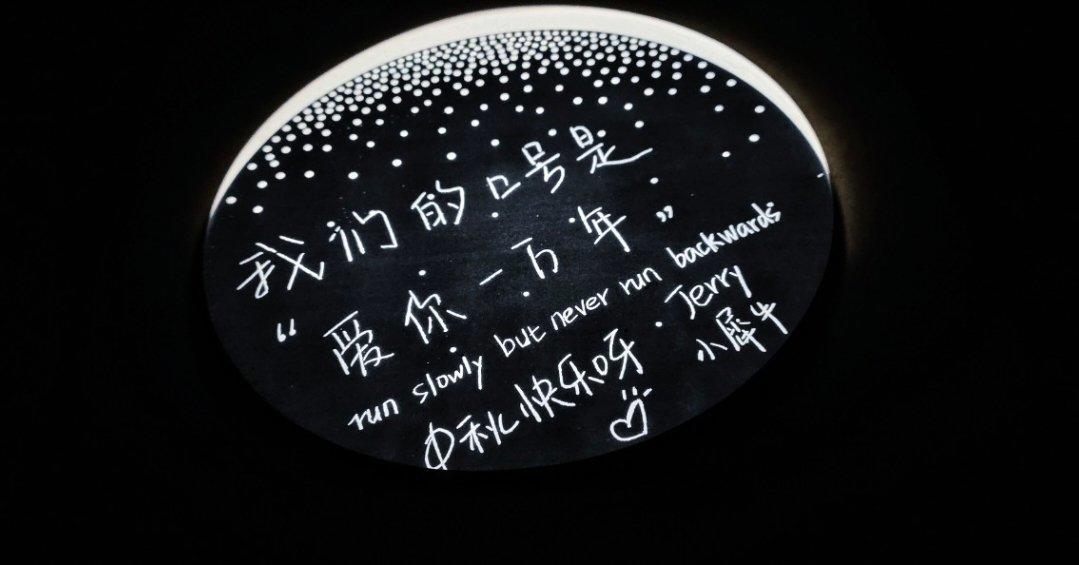 我们的口号是
“爱你一万年”
run slowly but never run backwards
中秋快乐呀. Jerry
小犀牛